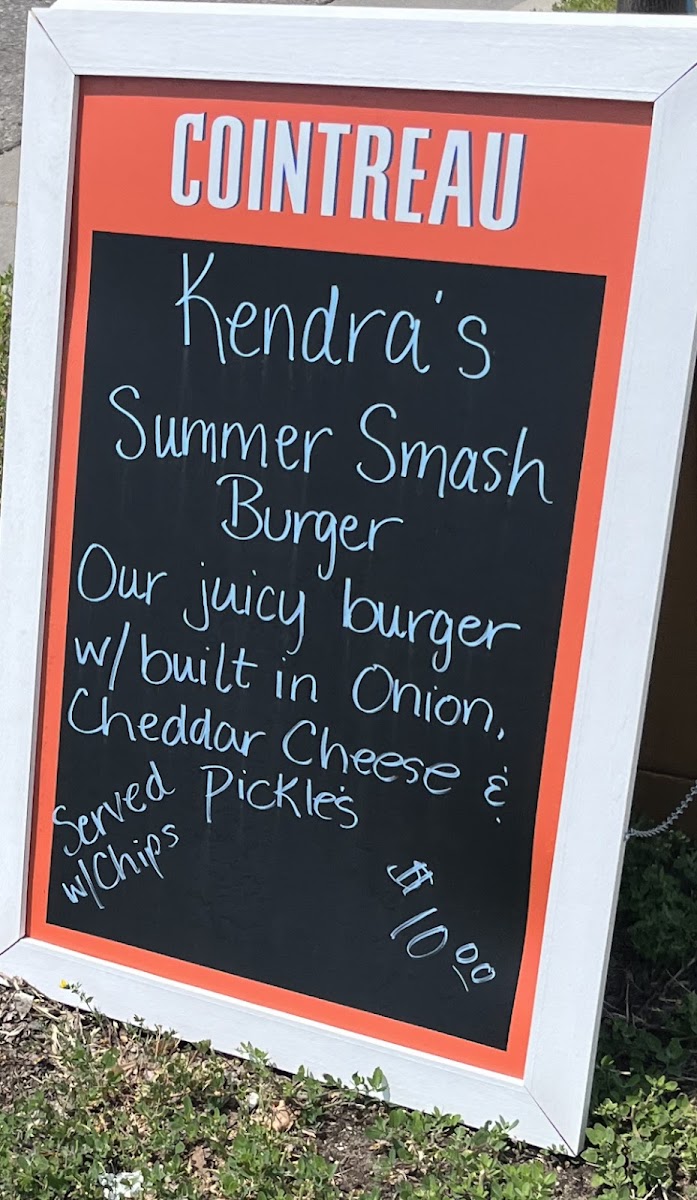 COINTREAU
Kendra's
Summer Smash
Burger
Our juicy burger
w/ built in Onion,
Cheddar Cheese &
Pickle's
Served
w/Chips
$10.00